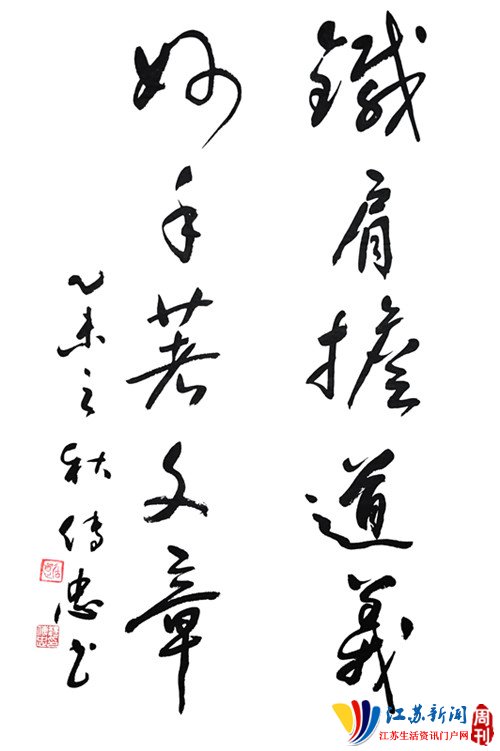 鐵肩擔道義
妙手著文章
乙未之秋傳忠书
江苏新闻
周刊
江苏生活资讯门户网